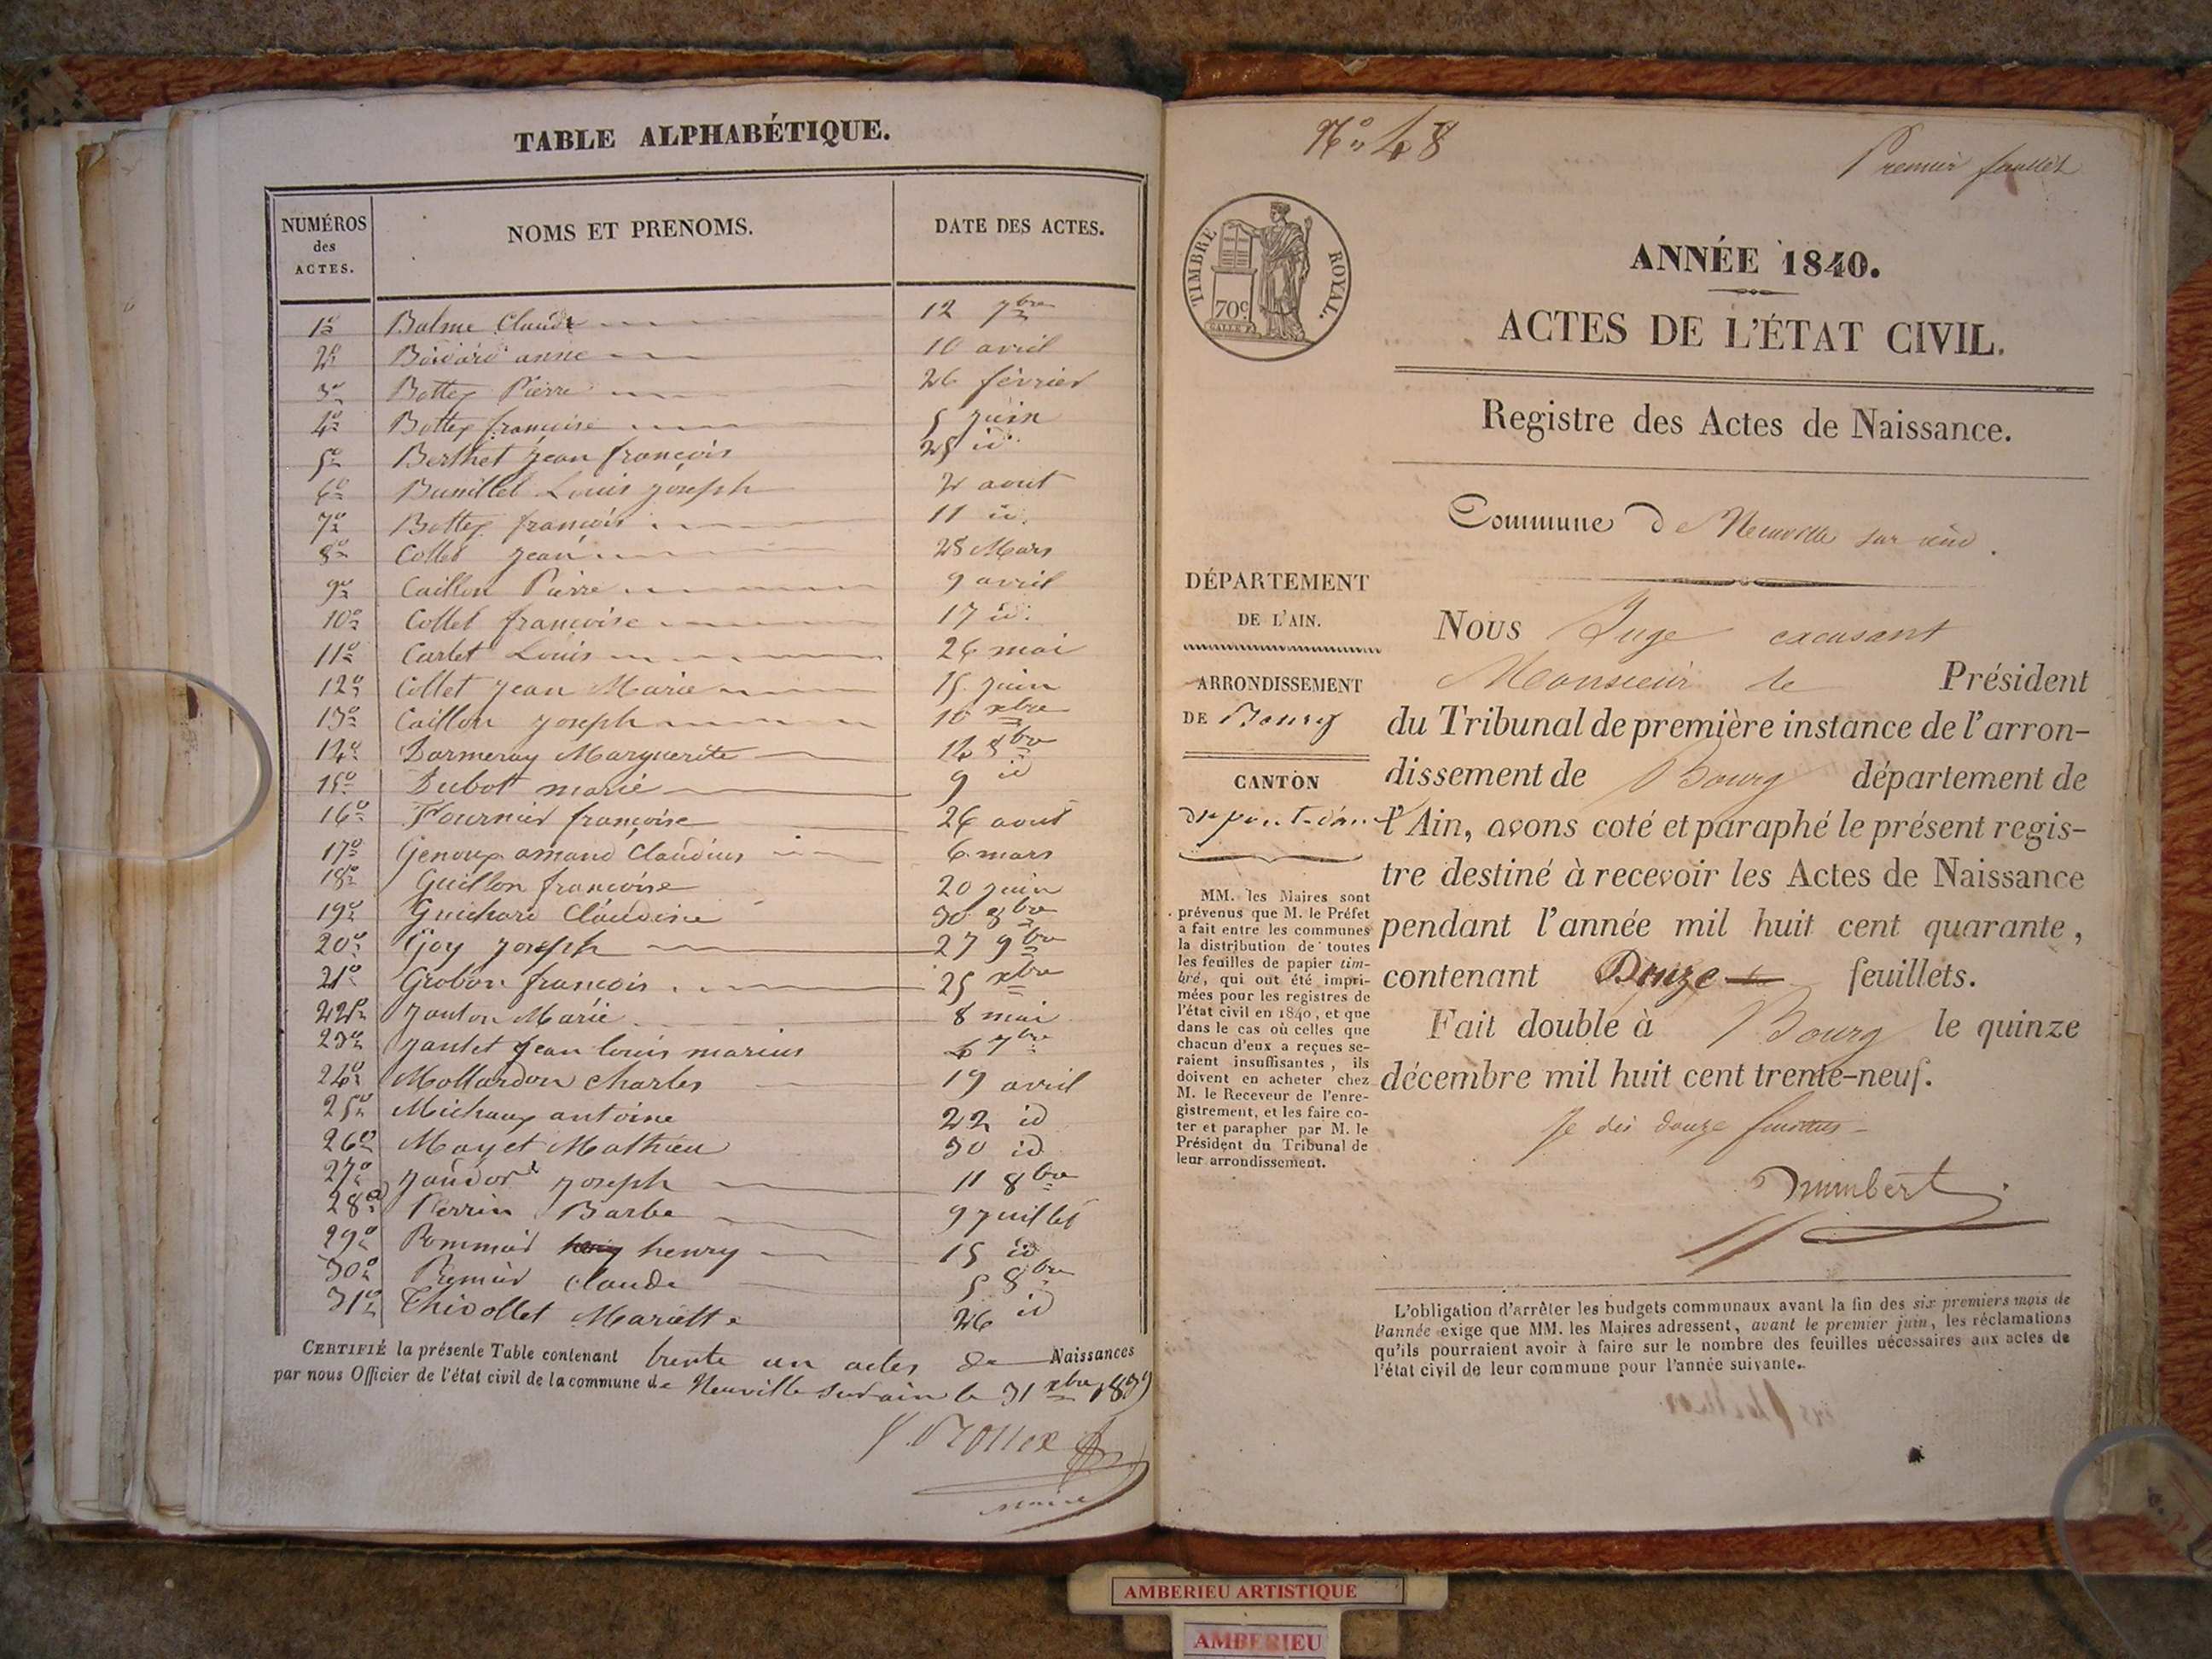 TABLE ALPHABÉTIQUE.
NUMÉROS des ACTES.
NOMS ET PRENOMS.
DATE DES ACTES.
1º Balme Claude 12 7bre
2º anne 10 avril
3º Bottex Pierre 26 février
4º Bottex françoise 5 juin
5º Berthet jean françois 25 id
6º Louis joseph 2 aout
7º Bottex françois 11 id.
8º Collet jean 28 Mars
9º Caillon Pierre 9 avril
10º Collet françoise 17 id.
11º Carlet Louis 26 mai
12º Collet jean Marie 15 juin
13º Caillon joseph 10 xbre
14º Darmeray Marguerite 14 8bre
15º Dubot marie 9 id
16º Fournier françoise 26 aout
17º Genoux amand Claudius 6 mars
18º Guillon françoise 20 juin
19º Guichard Claudine 30 8bre
20º Goy joseph 27 9bre
21º Grobon francois 25 xbre
22º janton Marie 8 mai
23º jantet jean louis marius 7bre
24º Mollardon charles 19 avril
25º Michaux antoine 22 id
26º Mayet Mathieu 30 id
27º joseph 11 8bre
28º Perrin Barbe 9 juillet
29º Pommier henry 15 id
30º Premier claude 5 8bre
31º Thivollet Mariette 26 id
CERTIFIÉ la présente Table contenant trente un actes de Naissances
par nous Officier de l'état civil de la commune de Neuville sur ain le 31 xbre 1839
maire
Nº 48
Premier feuillet
TIMBRE ROYAL.
70c
ANNÉE 1840.
ACTES DE L'ÉTAT CIVIL.
Registre des Actes de Naissance.
Commune de Neuville sur ain.
DÉPARTEMENT
DE L'AIN.
ARRONDISSEMENT
DE Bourg
CANTON
de pont-d'ain
MM. les Maires sont
prévenus que M. le Préfet
a fait entre les communes
la distribution de toutes
les feuilles de papier tim-
bré, qui ont été impri-
mées pour les registres de
l'état civil en 1840, et que
dans le cas où celles que
chacun d'eux a reçues se-
raient insuffisantes, ils
doivent en acheter chez
M. le Receveur de l'enre-
gistrement, et les faire co-
ter et parapher par M. le
Président du Tribunal de
leur arrondissement.
Nous Juge excusant
Monsieur le Président
du Tribunal de première instance de l'arron-
dissement de Bourg département de
l'Ain, avons coté et paraphé le présent regis-
tre destiné à recevoir les Actes de Naissance
pendant l'année mil huit cent quarante,
contenant Douze feuillets.
Fait double à Bourg le quinze
décembre mil huit cent trente-neuf.
Je dis douze feuillets
L'obligation d'arrêter les budgets communaux avant la fin des six premiers mois de
l'année exige que MM. les Maires adressent, avant le premier juin, les réclamations
qu'ils pourraient avoir à faire sur le nombre des feuilles nécessaires aux actes de
l'état civil de leur commune pour l'année suivante.
AMBERIEU ARTISTIQUE
AMBERIEU